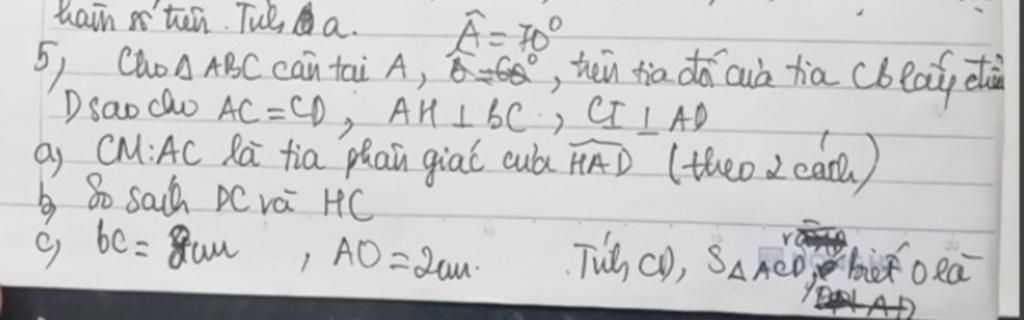 hàm số trên. Tính a. Â = 70°
5, Cho Δ ABC cân tại A, trên tia đối của tia Cb lấy điểm
D sao cho AC = CD, AH ⊥ bC, CI ⊥ AD
a, CM: AC là tia phân giác của HAD (theo 2 cách)
b, So sánh DC và HC
c, bC = 8cm, AO = 2cm. Tính CD, S Δ ACD, biết O là